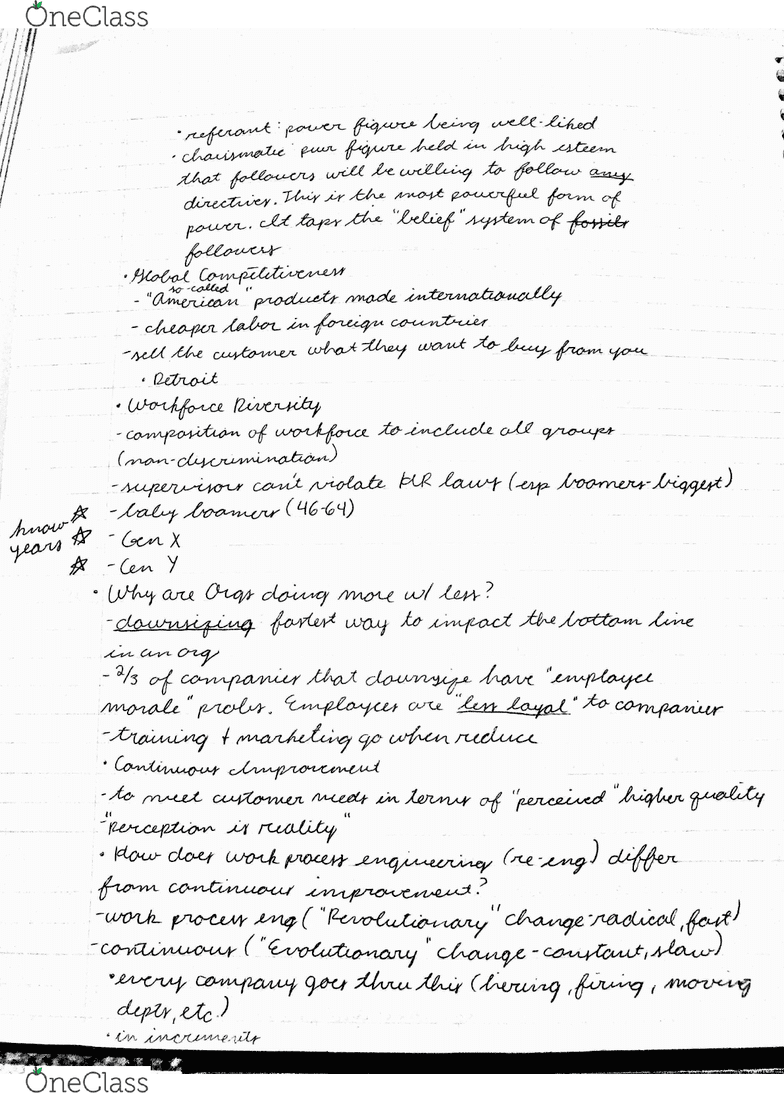 OneClass
• referant: power figure being well-liked
• charismatic: pwr figure held in high esteem
that followers will be willing to follow any
directives. This is the most powerful form of
power. It taps the "belief" system of fossils
followers
• Global Competitiveness
so-called
- "American" products made internationally
- cheaper labor in foreign countries
- sell the customer what they want to buy from you
• Detroit
• Workforce Diversity
- composition of workforce to include all groups
(non-discrimination)
- supervisors can't violate HR laws (esp boomers-biggest)
know ☆ - baby boomers (46-64)
years ☆ - Gen X
☆ - Gen Y
• Why are Orgs doing more w/ less?
- downsizing fastest way to impact the bottom line
in an org
- 2/3 of companies that downsize have "employee
morale" probs. Employees are "less loyal" to companies
- training + marketing go when reduce
• Continuous Improvement
- to meet customer needs in terms of "perceived" higher quality
- "perception is reality"
• How does work process engineering (re-eng) differ
from continuous improvement?
- work process eng ("Revolutionary" change-radical, fast)
- continuous ("Evolutionary" change-constant, slow)
• every company goes thru this (hiering, firing, moving
depts, etc.)
• in increments
OneClass